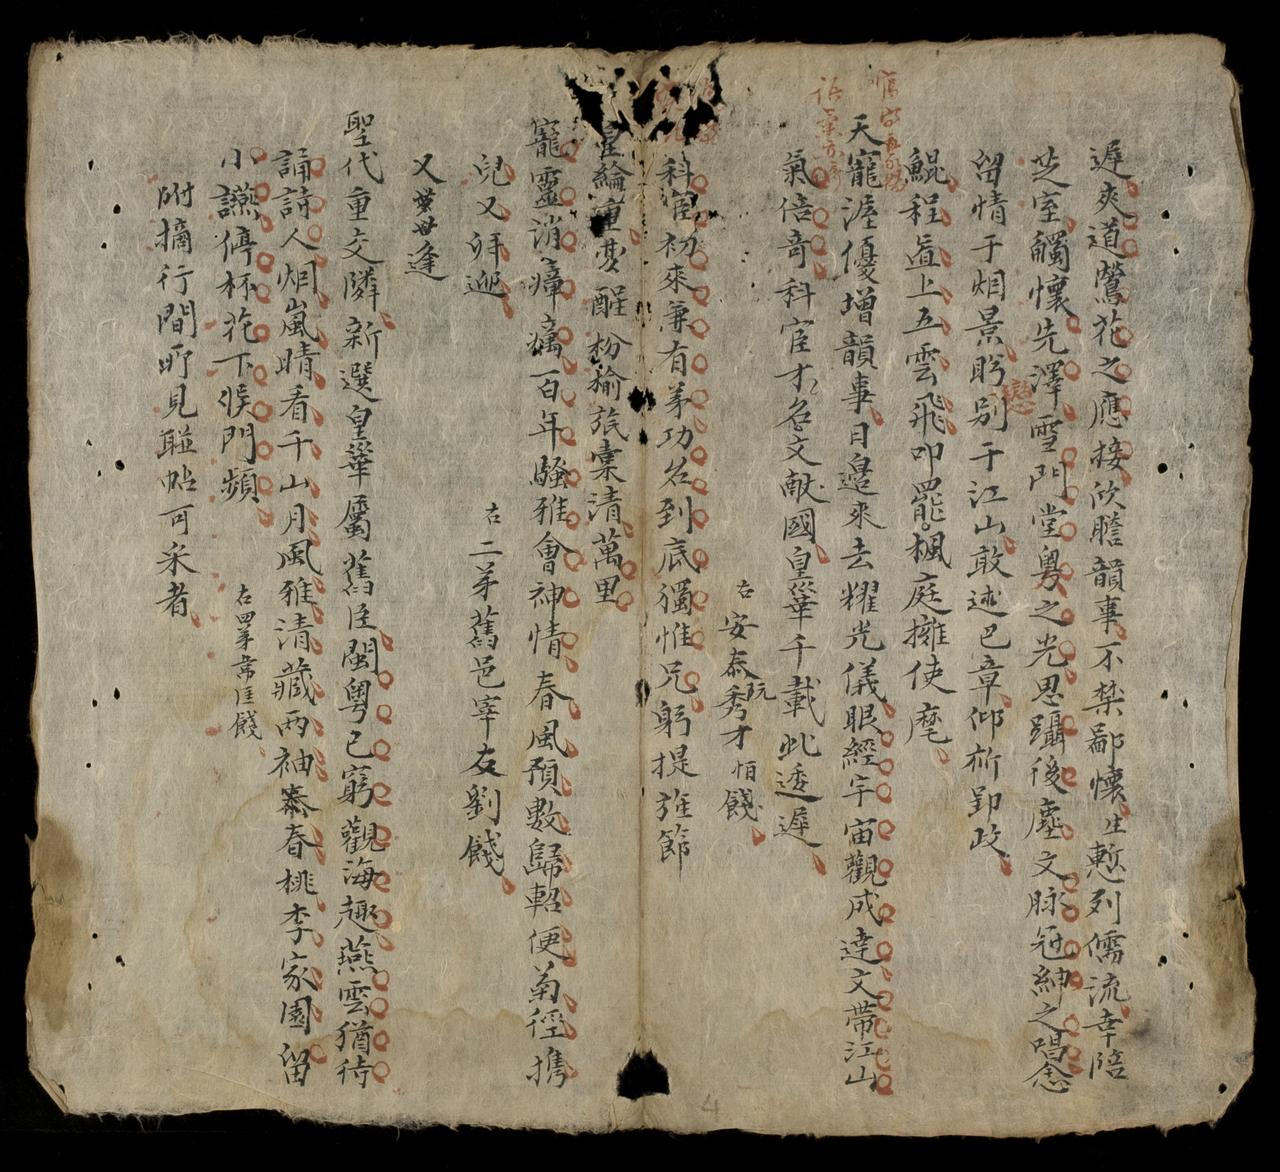 遲爽道鶯花之應接欣瞻韻事不禁鄙懷生慙列儒流幸陪
芝室觸懷先澤雪門堂奧之光思躡後塵文脉冠紳之唱念
留情于烟景盻別于江山敢述巴章仰祈郢政
戀
鯤程直上五雲飛叩罷楓庭擁使麾
天寵渥優增韻事日邊來去耀光儀眼經宇宙觀成達文帶江山
氣倍奇科宦才名文獻國皇華千載此逶遲
右安泰阮秀才怕餞
科宦初來兼有茅功名到底獨惟兄躬提旌節
皇綸重夢醒枌榆旅橐清萬里
寵靈消瘴癘百年騷雅會神情春風預數歸軺便菊徑携
兒又拜迎
右二茅舊邑宰友劉餞
又世逢
聖代重交隣新選皇華屬舊臣閩粤已窮觀海趣燕雲猶待
誦詩人烟嵐晴看千山月風雅清藏兩袖春桃李家園留
小讌停杯花下候門頻
右四茅常匡餞
附摘行間所見聯帖可采者